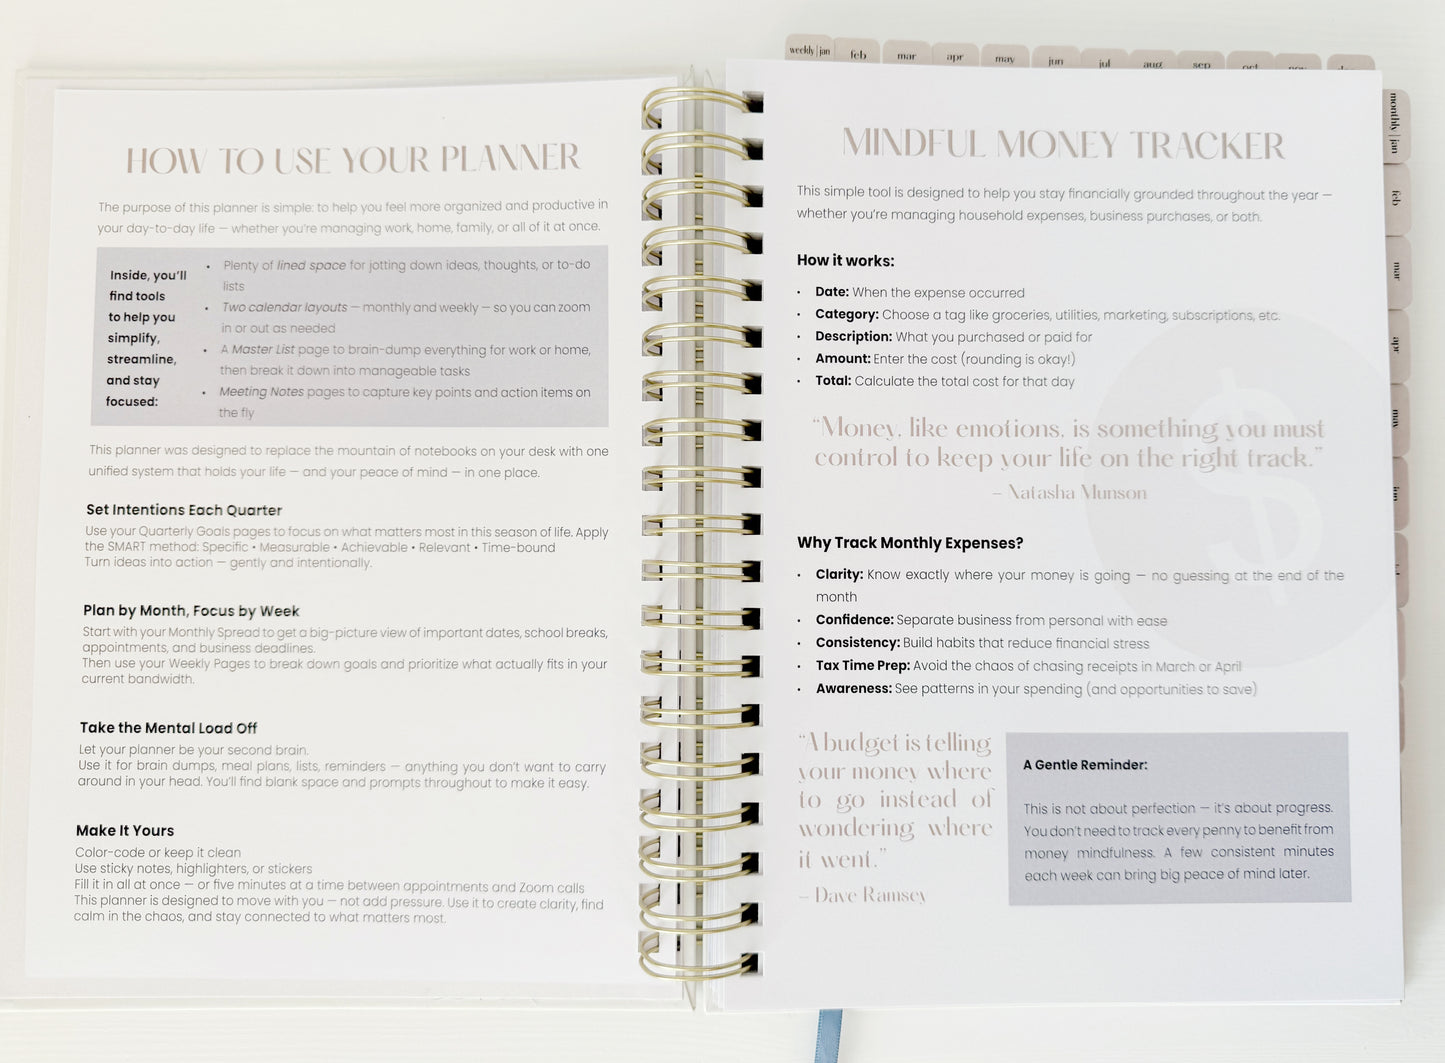 weekly | jan
feb
mar
apr
may
jun
jul
aug
sep
oct
nov
monthly | jan
feb
mar
apr
may
jun
HOW TO USE YOUR PLANNER
The purpose of this planner is simple: to help you feel more organized and productive in
your day-to-day life — whether you're managing work, home, family, or all of it at once.
Inside, you'll
find tools
to help you
simplify,
streamline,
and stay
focused:
• Plenty of lined space for jotting down ideas, thoughts, or to-do
lists
• Two calendar layouts — monthly and weekly — so you can zoom
in or out as needed
• A Master List page to brain-dump everything for work or home,
then break it down into manageable tasks
• Meeting Notes pages to capture key points and action items on
the fly
This planner was designed to replace the mountain of notebooks on your desk with one
unified system that holds your life — and your peace of mind — in one place.
Set Intentions Each Quarter
Use your Quarterly Goals pages to focus on what matters most in this season of life. Apply
the SMART method: Specific • Measurable • Achievable • Relevant • Time-bound
Turn ideas into action — gently and intentionally.
Plan by Month, Focus by Week
Start with your Monthly Spread to get a big-picture view of important dates, school breaks,
appointments, and business deadlines.
Then use your Weekly Pages to break down goals and prioritize what actually fits in your
current bandwidth.
Take the Mental Load Off
Let your planner be your second brain.
Use it for brain dumps, meal plans, lists, reminders — anything you don't want to carry
around in your head. You'll find blank space and prompts throughout to make it easy.
Make It Yours
Color-code or keep it clean
Use sticky notes, highlighters, or stickers
Fill it in all at once — or five minutes at a time between appointments and Zoom calls
This planner is designed to move with you — not add pressure. Use it to create clarity, find
calm in the chaos, and stay connected to what matters most.
MINDFUL MONEY TRACKER
This simple tool is designed to help you stay financially grounded throughout the year —
whether you're managing household expenses, business purchases, or both.
How it works:
• Date: When the expense occurred
• Category: Choose a tag like groceries, utilities, marketing, subscriptions, etc.
• Description: What you purchased or paid for
• Amount: Enter the cost (rounding is okay!)
• Total: Calculate the total cost for that day
"Money, like emotions, is something you must
control to keep your life on the right track."
– Natasha Munson
$
Why Track Monthly Expenses?
• Clarity: Know exactly where your money is going — no guessing at the end of the
month
• Confidence: Separate business from personal with ease
• Consistency: Build habits that reduce financial stress
• Tax Time Prep: Avoid the chaos of chasing receipts in March or April
• Awareness: See patterns in your spending (and opportunities to save)
"A budget is telling
your money where
to go instead of
wondering where
it went."
– Dave Ramsey
A Gentle Reminder:
This is not about perfection — it's about progress.
You don't need to track every penny to benefit from
money mindfulness. A few consistent minutes
each week can bring big peace of mind later.